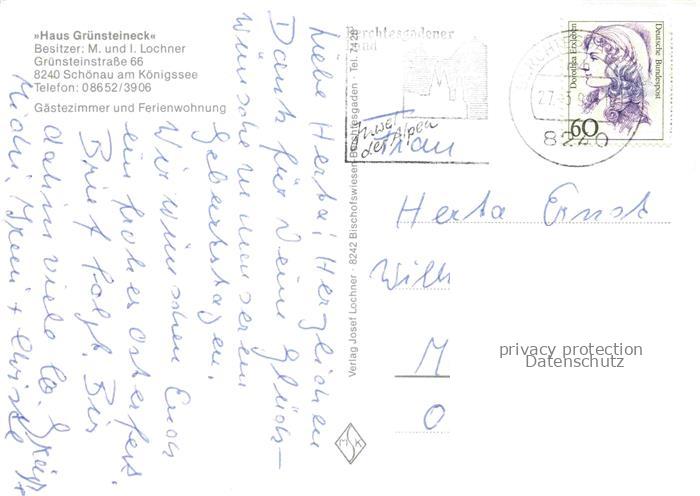 »Haus Grünsteineck«
Besitzer: M. und I. Lochner
Grünsteinstraße 66
8240 Schönau am Königssee
Telefon: 08652/3906
Gästezimmer und Ferienwohnung
Liebe Herta! Herzlichen
Dank für Deine Glück-
wünsche zu unserem
Geburtstagen.
Wir wünschen Euch
ein frohes Osterfest.
Brief folgt. Bis
dahin viele lb. Grüße
Michi, + Christe
Verlag Josef Lochner · 8242 Bischofswiesen-Berchtesgaden · Tel. 7428
MSK
Berchtesgadener
Land
Inwel
der Alpen
8240
Dorothea Erxleben
Deutsche Bundespost
60
Frau
Herta Ernst
Wilh
M
O
privacy protection
Datenschutz